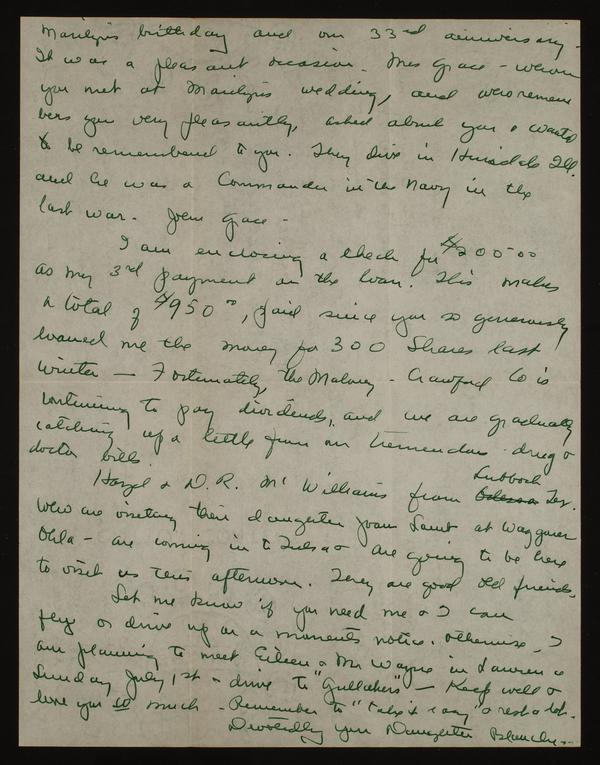 Marilyn's birthday and our 33rd anniversary.
It was a pleasant occasion. Mrs Grace - whom
you met at Marilyn's wedding, and who remem
bers you very pleasantly, asked about you & wanted
to be remembered to you. They live in Hinsdale Ill.
and he was a Commander in the Navy in the
last war - John Grace -
I am enclosing a check for $200.00
as my 3rd payment on the loan. This makes
a total of $950.00, paid since you so generously
loaned me the money for 300 Shares last
Winter — Fortunately, the Maloney - Crawford Co is
continuing to pay dividends, and we are gradually
catching up a little from our tremendous drug &
doctor bills.
Hazel & D.R. McWilliams from Odessa Lubbock Tex.
who are visiting their daughter Joan at Waggoner
Okla - are coming in to Tulsa & are going to be here
to visit us this afternoon. They are good old friends.
Let me know if you need me & I can
fly or drive up on a moments notice. Otherwise, I
am planning to meet Eileen & Mr Wayne in Lawrence
Sunday July 1st & drive to "Gullakers" — Keep well &
love you so much - Remember to "take it easy" & rest a lot.
Devotedly your Daughter Blanche -